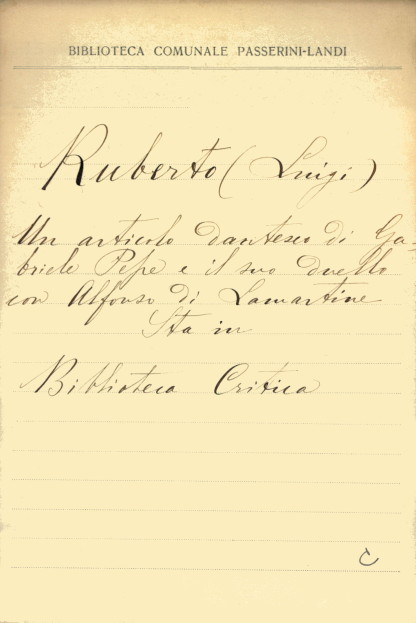 BIBLIOTECA COMUNALE PASSERINI-LANDI
Ruberto (Luigi)
Un articolo dantesco di Ga-
briele Pepe e il suo duello
con Alfonso di Lamartine
Sta in
Biblioteca Critica
C